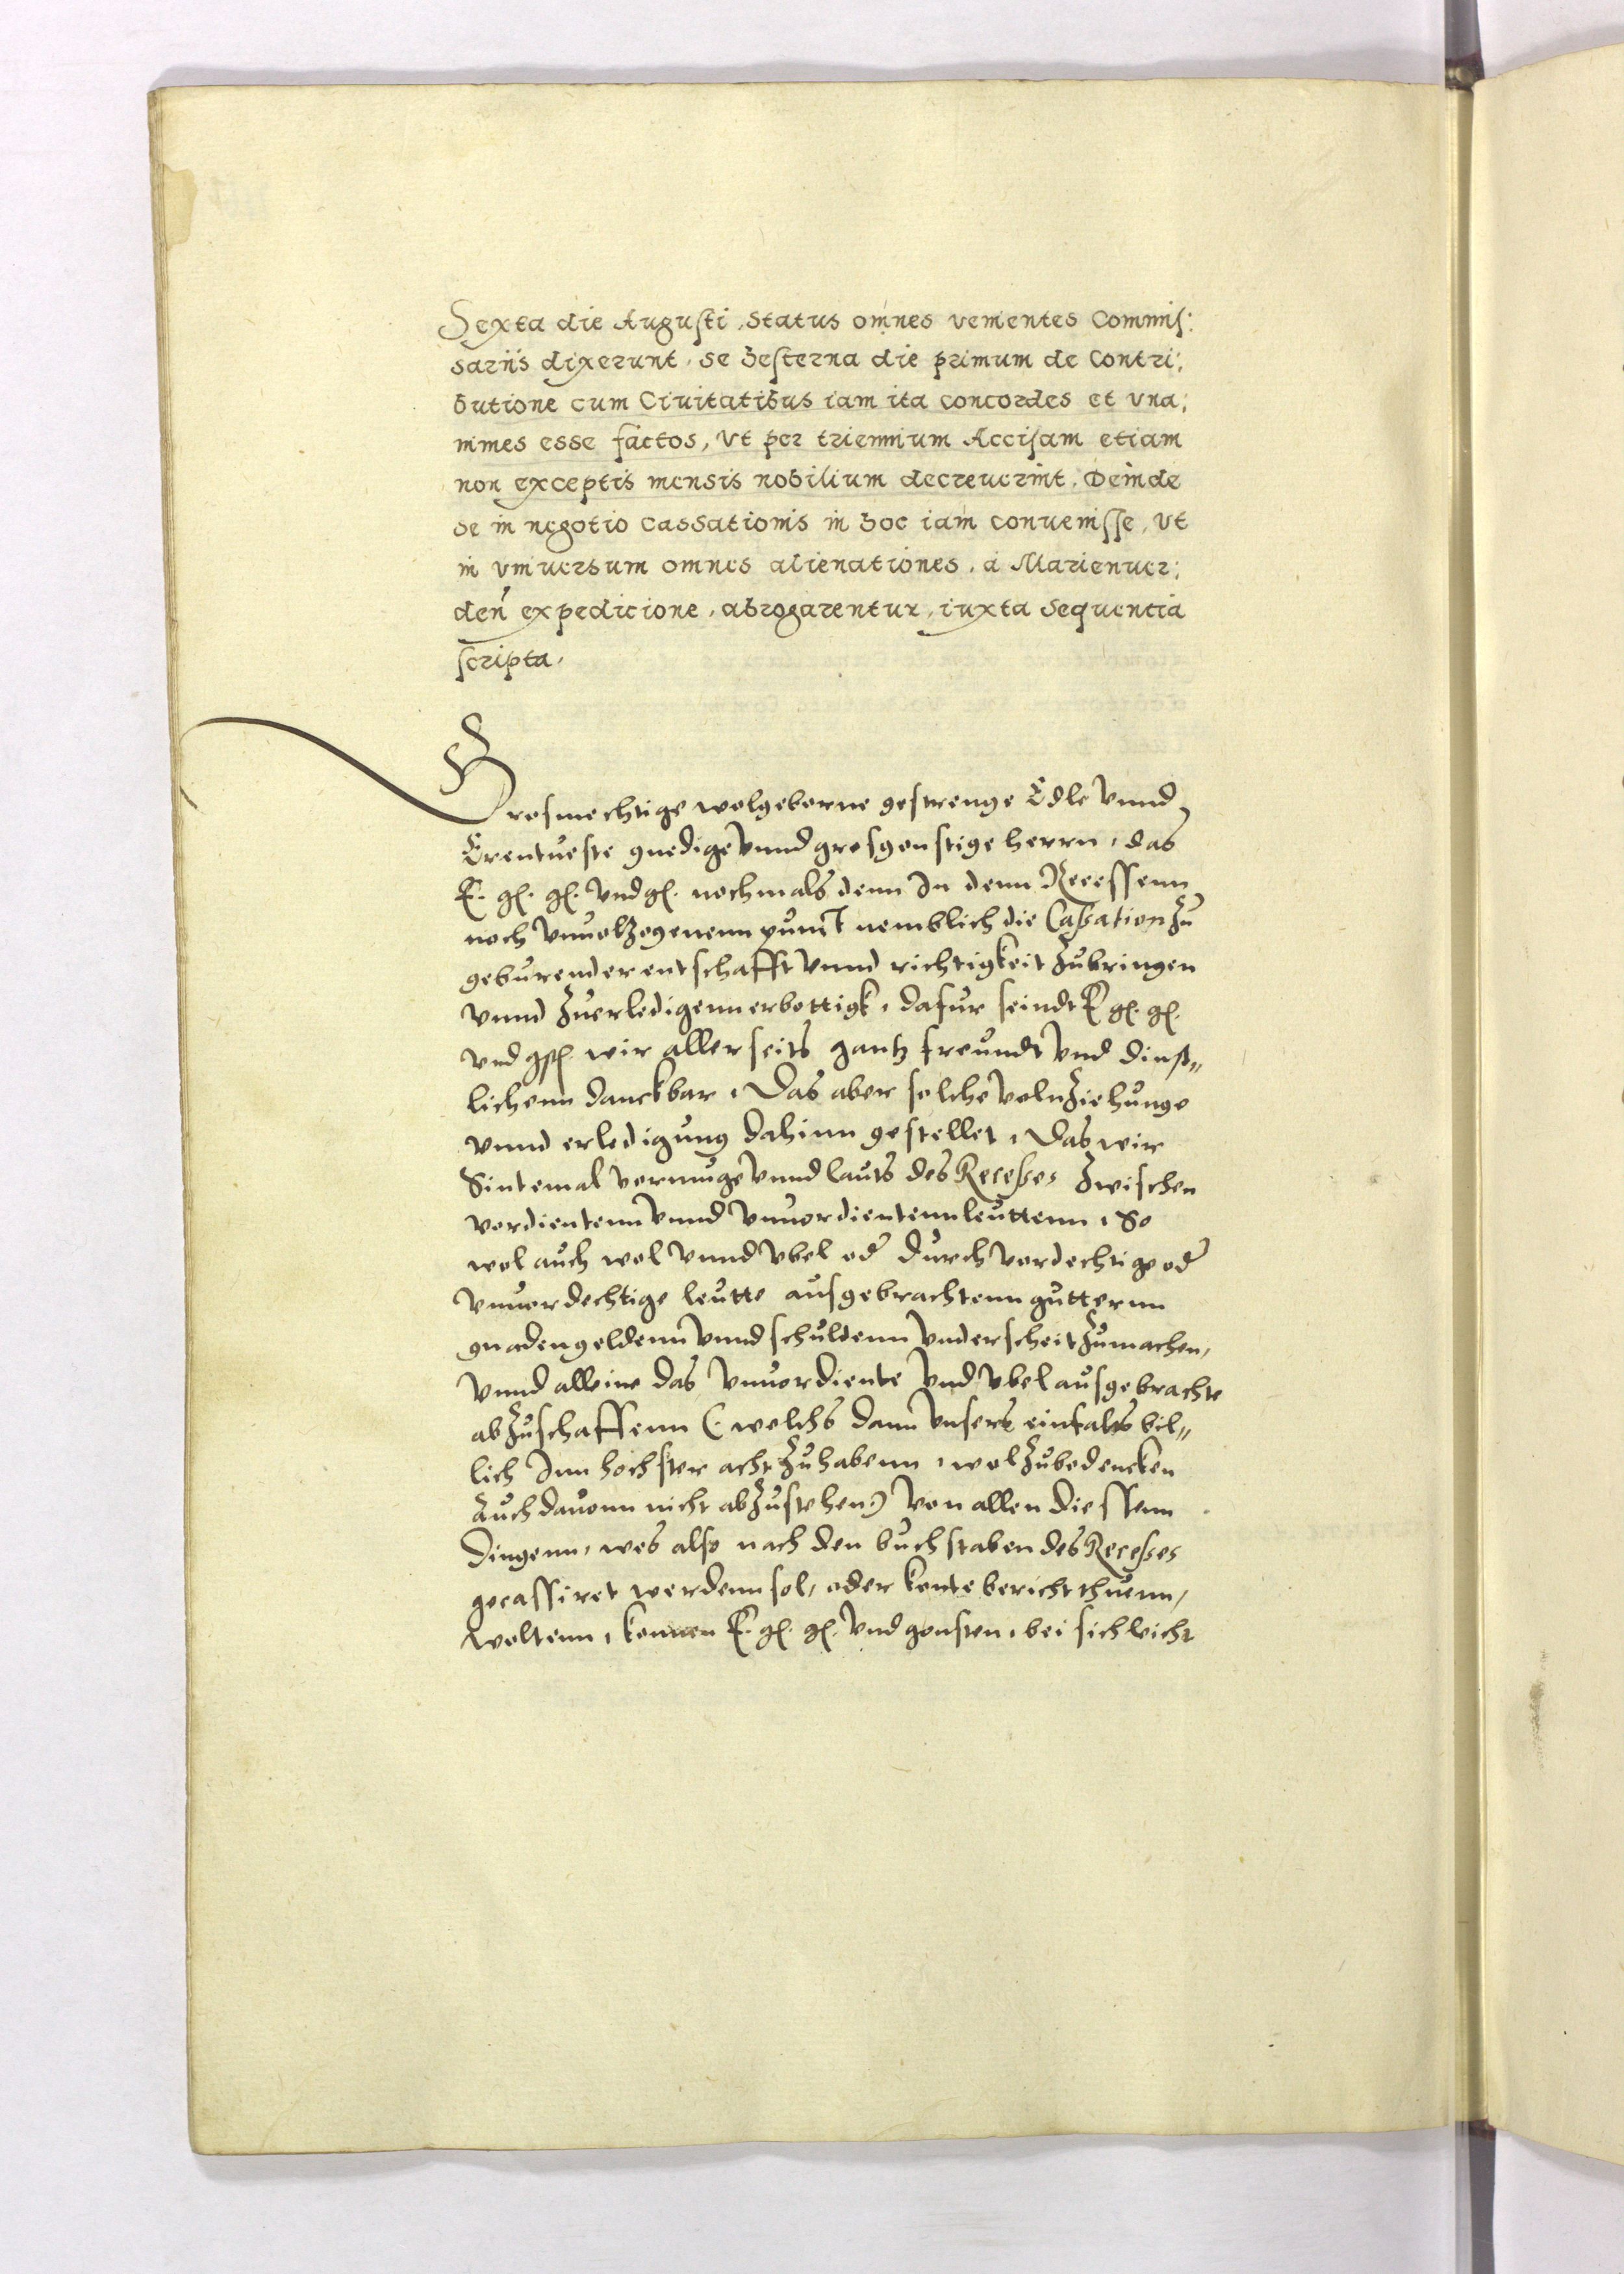 Sexta die Augusti, Status omnes venientes Commis:
sariis dixerunt, se hesterna die primum de Contri:
butione cum Ciuitatibus iam ita concordes et vna:
nimes esse factos, Vt per triennium Accisam etiam
non exceptis mensis nobilium decreuerint. Deinde
se in negotio cassationis in hoc iam conuenisse, Vt
in vniuersum omnes alienationes, a Marienuer:
den expedicione, abrogarentur, iuxta Sequentia
scripta.
Grosmechtige wolgeborne gestrenge Edle Vnnd
Erentueste gnedige Vnnd grosgonstige herrn, das
E. g. g. Vnd g. nochmals denn In denn Recessenn
noch Vnuolzogenenn punct nemblich die Caßation zu
geburender entschafft Vnnd richtigkeit zubringen
Vnnd zuerledigenn erbottigk, dafur seindt E g. g.
Vnd g. wir allerseits gantz freundt Vnd dinst„
lichenn danckbar, Das aber solche Volnziehunge
Vnnd erledigung dahinn gestellet, Das wir
Sintemal vermuge Vnnd lauts des Recesses zwischen
verdientenn Vnnd Vnuerdientenn leuttenn, So
wol auch wol Vnnd Vbel od durch verdechtige od
Vnuerdechtige leutte ausgebrachtenn gutternn
gnadengeldenn Vnnd schuldenn Vnderscheit zumachen,
Vnnd alleine das Vnuerdiente Vnd Vbel ausgebrachte
abzuschaffenn (: welchs dann Vnsers einfalts bil„
lich Inn hochster acht zuhabenn, wol zubedencken
Auch dauonn nicht abzustehen:) Von allen diessenn
Dingenn, wes also nach den buchstaben des Recesses
gecassiret werdenn sol, oder konte bericht thuenn,
woltenn, konnen E. g. g. Vnd gonsten, bei sich licht